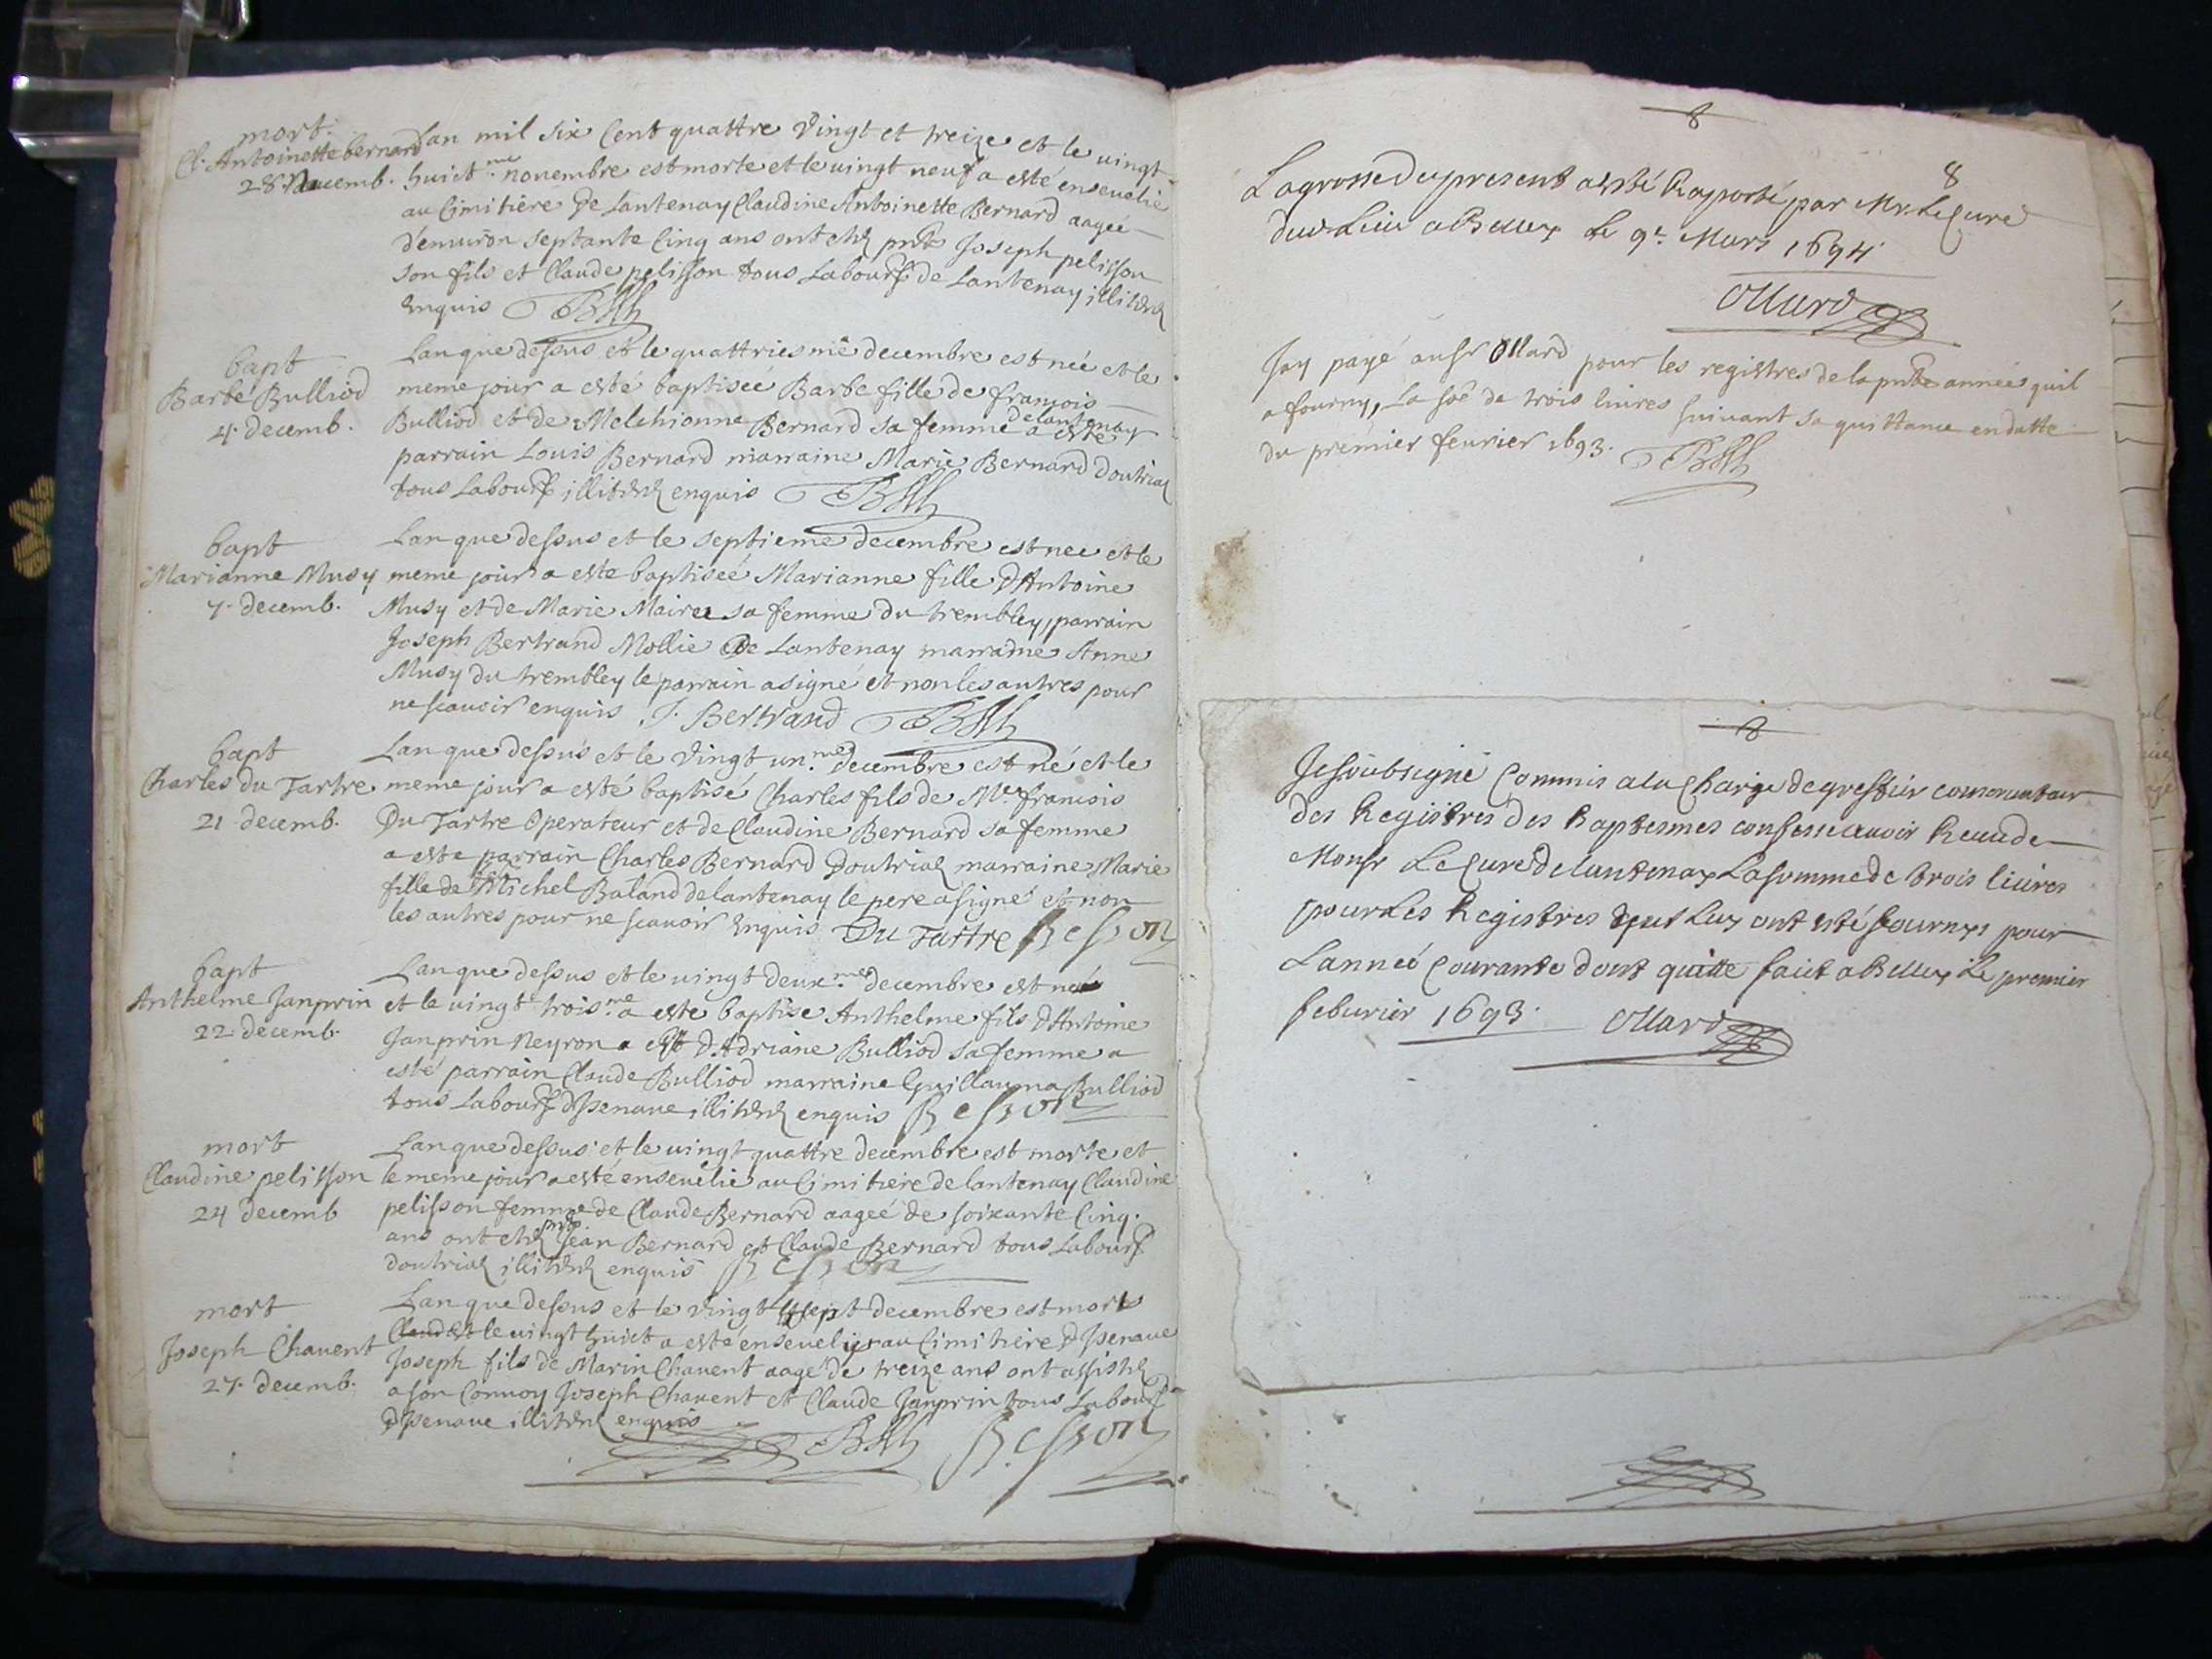 mort.
Cl. Antoinette bernard
28. Novemb.
Lan mil six Cent quattre Vingt et treize et le vingt
huict.me novembre est morte et le vingt neuf a esté ensevelie
au Cimitiere De Lantenay Claudine Antoinette Bernard aageé
d'environ septante Cinq ans ont etez pnts Joseph pelisson
son fils et Claude pelisson tous Labours de Lantenay illiterez
enquis
bapt
Barbe Bulliod
4. decemb.
Lan que dessus et le quattriesme decembre est née et le
meme jour a esté baptiseé Barbe fille de francois
Bulliod et de Melchionne Bernard sa femme delantenay a esté
parrain Louis Bernard marraine Marie Bernard Doutriaz
tous Labours illiterez enquis
bapt
Marianne Musy
7. decemb.
Lan que dessus et le septieme decembre est nee et le
meme jour a este baptiseé Marianne fille D'Antoine
Musy et de Marie Maire sa femme du trembley, parrain
Joseph Bertrand Mollie De Lantenay marraine Anne
Musy du trembley le parrain a signé et non les autres pour
ne scavoir enquis. J. Bertrand
bapt
Charles Du Tartre
21 decemb.
Lan que dessus et le Vingt un.me decembre est né et le
meme jour a esté baptisé Charles fils de Mre francois
Du Tartre Operateur et de Claudine Bernard sa femme
a este parrain Charles Bernard Doutriaz marraine Marie
fille de Michel Baland delantenay le pere a signé et non
les autres pour ne scavoir enquis Du Tartre Besson
bapt
Anthelme Janprin
22. decemb.
Lan que dessus et le vingt deux.me decembre est né
et le vingt trois.me a este baptise Anthelme fils D'Antoine
Janprin Neyron et D'Adriane Bulliod sa femme a
esté parrain Claude Bulliod marraine Guillauma Bulliod
tous Labours d'Isenave illiterez enquis Besson
mort
Claudine pelisson
24 decemb
Lan que dessus et le vingt quattre decembre est morte et
le meme jour a esté ensevelie au Cimitiere de lantenay Claudine
pelisson femme de Claude Bernard aageé de soixante Cinq.
ans ont etez pnts Jean Bernard et Claude Bernard tous Labours
doutriaz illiterez enquis Besson
mort
Joseph Chavent
27. decemb.
Lan que dessus et le Vingt sept decembre est mort
et le vingt huict a esté ensevely au Cimitiere D'Isenave
Joseph fils de Marin Chavent aagé de treize ans ont assistez
a son Convoy Joseph Chavent et Claude Janprin tous Labours
D'Isenave illiterez enquis
Besson
8
8
La grosse du present a esté Raporté par Mr. Le Curé
dud Lieu a Belley Le 9e. Mars 1694
Ollard
Jay payé au sr Ollard pour les registres de la pnte année quil
a fourny, La soe de trois livres suivant sa quittance en datte
du premier fevrier 1693.
8
Je soubsigné Commis a la Charge de greffier conservateur
des Registres des Baptesmes confesse avoir Receu de
Monsr Le Curé de Lantenay La somme de trois livres
pour Les Registres quil Luy ont esté fournys pour
Lanneé Courante dont quitte faict a Belley Le premier
feburier 1693. Ollard